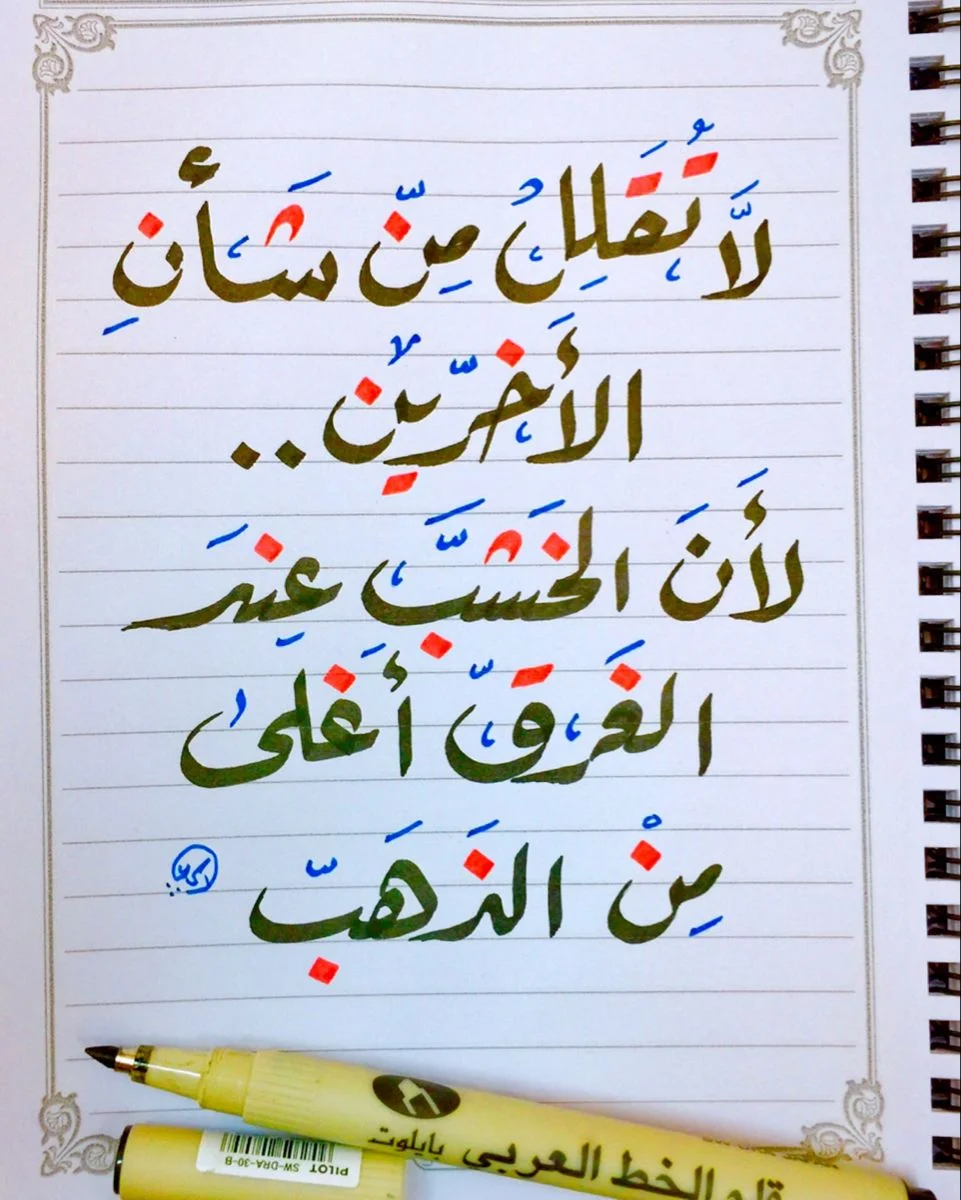 لَّا تُقَلِلْ مِنّ شَأنِ
الأَخرّين..
لأَنَ الخَشَبَّ عِندَ
الغَرَقّ أَغلى
مِنْ الذَهَبّ
قلم الخط العربي بايلوت
PILOT SW-DRA-30-B